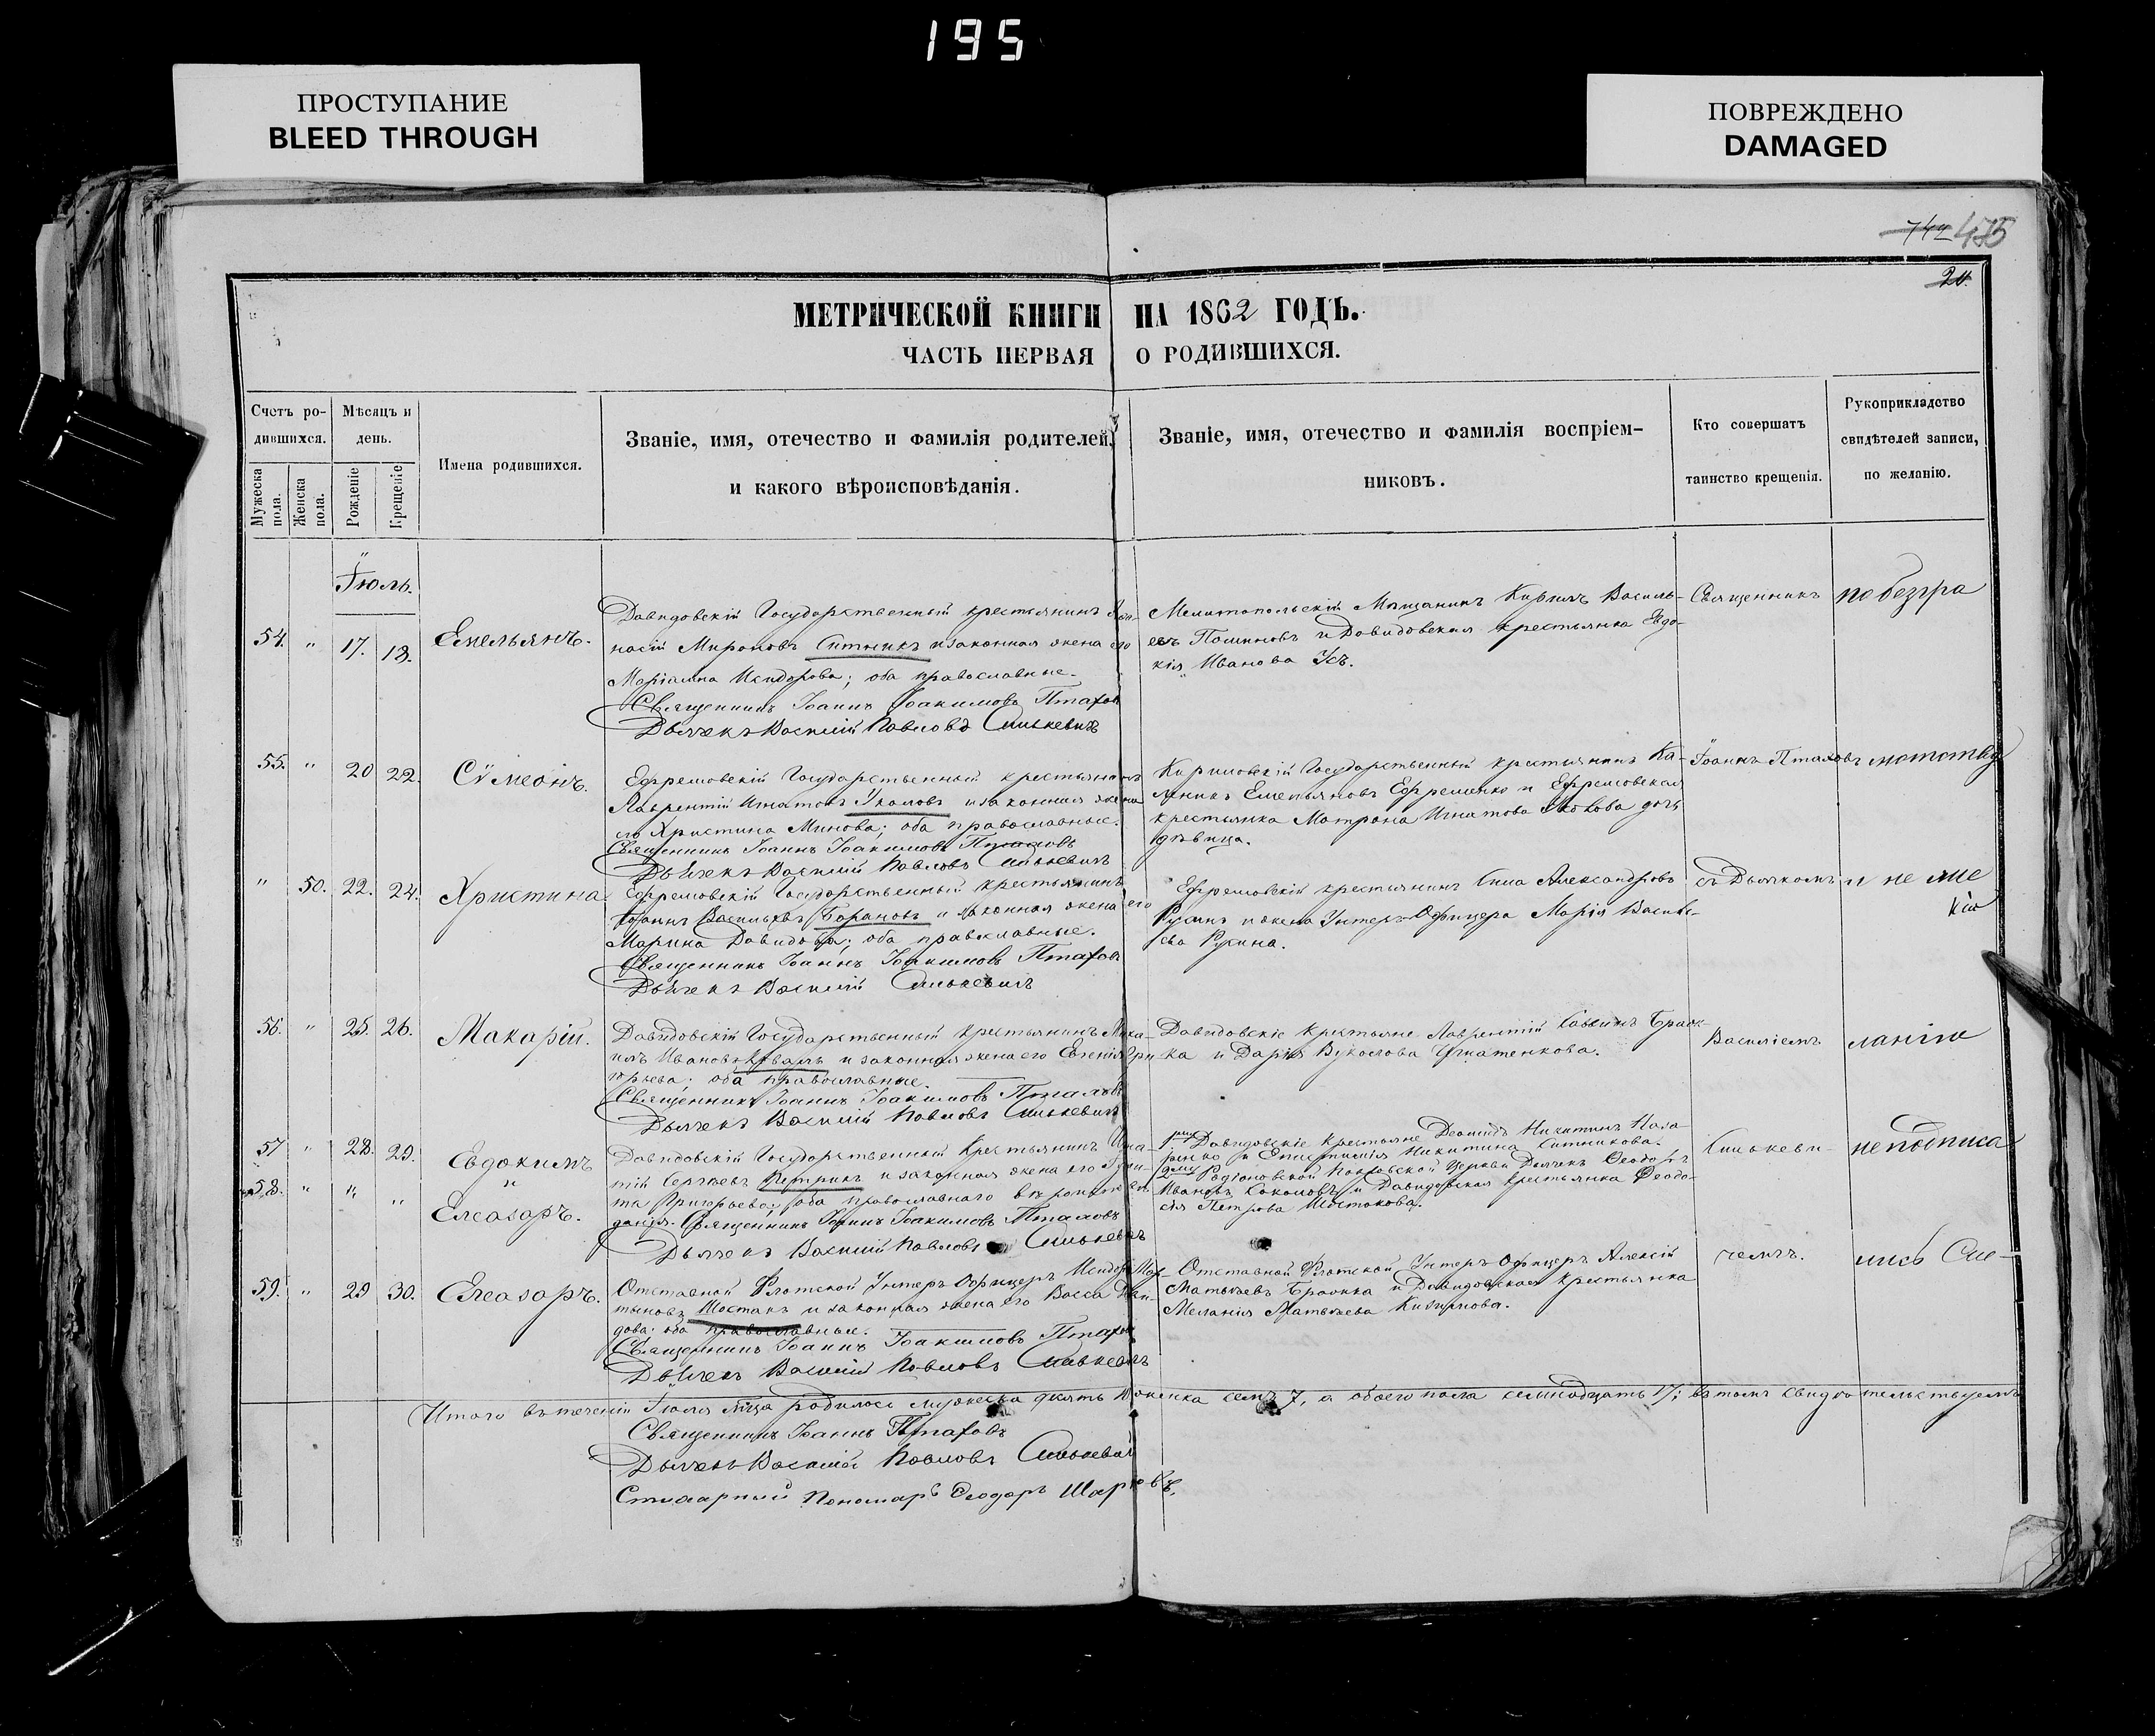 195
ПРОСТУПАНИЕ
BLEED THROUGH
ПОВРЕЖДЕНО
DAMAGED
742 475
20.
МЕТРИЧЕСКОЙ КНИГИ НА 1862 ГОДЪ.
ЧАСТЬ ПЕРВАЯ О РОДИВШИХСЯ.
Счетъ ро-
дившихся.
Мужеска пола.
Женска пола.
Мѣсяцъ и
день.
Рожденіе
Крещеніе
Имена родившихся.
Званіе, имя, отечество и фамилія родителей,
и какого вѣроисповѣданія.
Званіе, имя, отечество и фамилія воспріем-
никовъ.
Кто совершатъ
таинство крещенія.
Рукоприкладство
свидѣтелей записи,
по желанію.
Іюль.
54. " 17. 18. Емельянъ.
Давидовскій Государственный крестьянинъ
насій Мироновъ Ситникъ и законная жена его
Маріамна Исидорова; оба православные.
Священникъ Іоаннъ Іоакимовъ Птаховъ
Дьячекъ Василій Павловъ Синькевичъ
Мелитопольскій Мѣщанинъ Кирилъ Василь-
евъ и Давидовская крестьянка Евдо-
кія Иванова Усъ.
Священникъ
по безгра
55. " 20 22. Сѵмеонъ.
Ефремовскій Государственный крестьянинъ
Лаврентій Игнатовъ и законная жена
его Христина Минова; оба православные.
Священникъ Іоаннъ Іоакимовъ Птаховъ
Дьячекъ Василій Павловъ Синькевичъ
Кириловскій Государственный крестьянинъ Ка-
Емельяновъ Ефременко и Ефремовская
крестьянка Матрона Игнатова дочь
дѣвица.
Іоаннъ Птаховъ
мотству
" 50. 22. 24. Христина
Ефремовскій Государственный крестьянинъ
Іоаннъ Васильевъ Барановъ и законная жена его
Марина Давидова; оба православные.
Священникъ Іоаннъ Іоакимовъ Птаховъ
Дьячекъ Василій Синькевичъ
Ефремовскій крестьянинъ Сила Александровъ
Русинъ и жена Унтеръ-Офицера Марія Василь-
ева Русина.
съ Дьячкомъ
и не име
56. " 25. 26. Макарій.
Давидовскій Государственный крестьянинъ Миха-
илъ Ивановъ Коваль и законная жена его Евгенія Гри-
горьева; оба православные.
Священникъ Іоаннъ Іоакимовъ Птаховъ
Дьячекъ Василій Павловъ Синькевичъ
Давидовскіе крестьяне Лаврентій Саввинъ
ка и Дарія Вуколова Игнатенкова.
Василіемъ
57 " 28. 29. Евдокимъ
58. " " " Елеазаръ.
Давидовскій Государственный Крестьянинъ Игна-
тій Сергѣевъ Петрикъ и законная жена его
та Григорьева; оба православнаго вѣроисповѣ-
данія. Священникъ Іоаннъ Іоакимовъ Птаховъ
Дьячекъ Василій Павловъ Синькевичъ
Давидовскіе крестьяне Леонидъ Никитинъ Наза-
ренко и Епистимія Никитина Ситникова.
Родіоновской Покровской Церкви Дьячекъ Ѳеодоръ
Ивановъ Соколовъ и Давидовская крестьянка Ѳеодо-
сія Петрова Шостакова.
Синькеви-
не подписа
59. " 29 30. Елеазаръ.
Отставной Флотской Унтеръ Офицеръ Исидоръ Мар-
тыновъ Шостакъ и законная жена его Васса Дави-
дова; оба православные.
Священникъ Іоаннъ Іоакимовъ Птаховъ
Дьячекъ Василій Павловъ Синькевичъ
Отставной Флотской Унтеръ Офицеръ Алексій
Матвѣевъ и Давидовская крестьянка
Меланія Матвѣева
чемъ.
лись
Итого въ теченіи Іюля мѣсяца родилось мужеска девять женска семь 7, а обоего пола семнадцать 17; въ томъ свидѣтельствуемъ
Священникъ Іоаннъ Птаховъ
Дьячекъ Василій Павловъ Синькевичъ
Стихарный Пономарь Ѳеодоръ